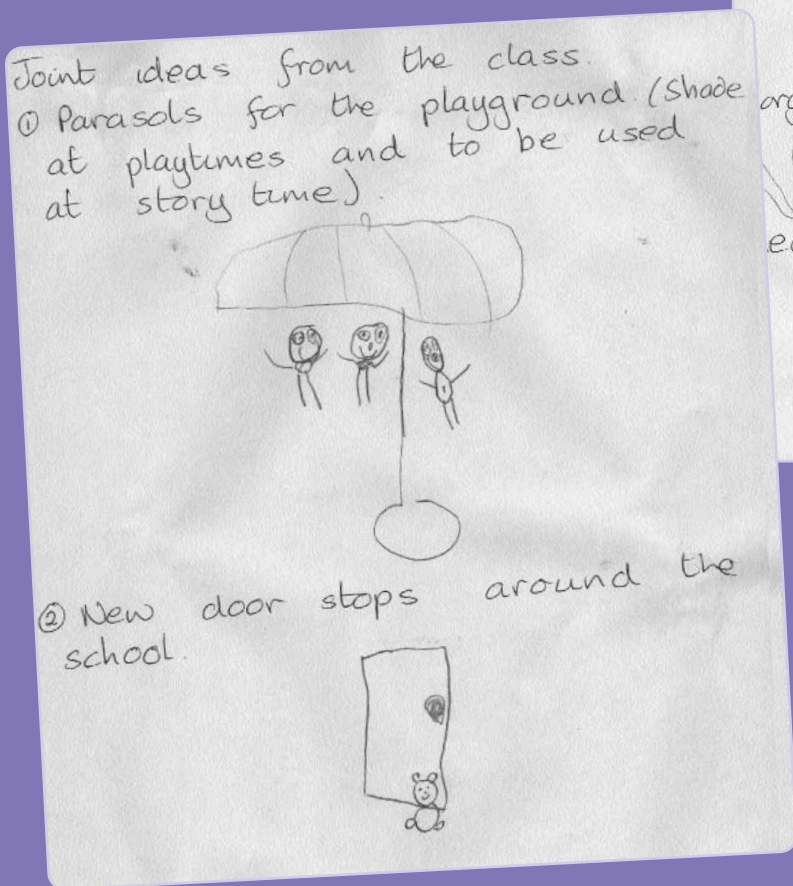 Joint ideas from the class.
① Parasols for the playground. (Shade
at playtimes and to be used
at story time).
② New door stops around the
school.